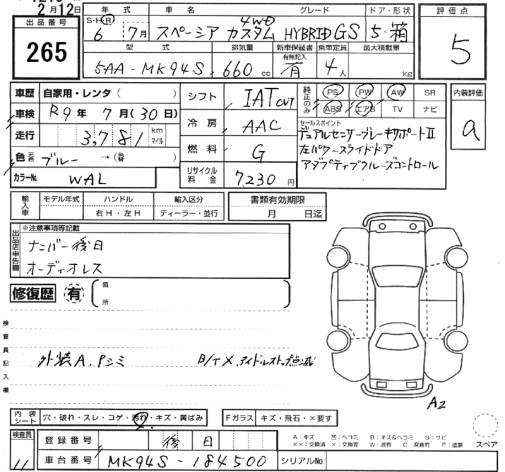 2月12日
出品番号
265
年式 車名 グレード ドア・形状
S・H・R 6 年 7月 スペーシア カスタム 4WD HYBRID GS 5・箱
型式 排気量 新車保証書 乗車定員 最大積載量
5AA-MK94S 660 cc 有無記入 有 4人 kg
評価点
5
内装評価
a
車歴 自家用・レンタ( )
車検 R9年 7月(30日)
走行 3,781 km マイル
色 ブルー → (替)
カラーNo. WAL
シフト IAT CVT
冷房 AAC
燃料 G
リサイクル料金 7,230円
純正のみ PS PW AW SR
ABS エアB TV ナビ
セールスポイント
デュアルセンサーブレーキサポートⅡ
左パワースライドドア
アダプティブクルーズコントロール
輸入車 モデル年式 ハンドル 輸入区分
右H・左H ディーラー・並行
書類有効期限
月 日迄
出品店申告欄
※注意事項等記載
ナンバー後日
オーディオレス
修復歴 有 箇所
検査員記入欄
外装A、Pシミ B/T X、アイドルストップ点滅
A2
内装シート 穴・破れ・スレ・コゲ・汚れ・キズ・黄ばみ Fガラス キズ・飛石・×要す
検査員 11
登録番号 後日
車台番号 MK94S-184500 シリアルNo.
スペア